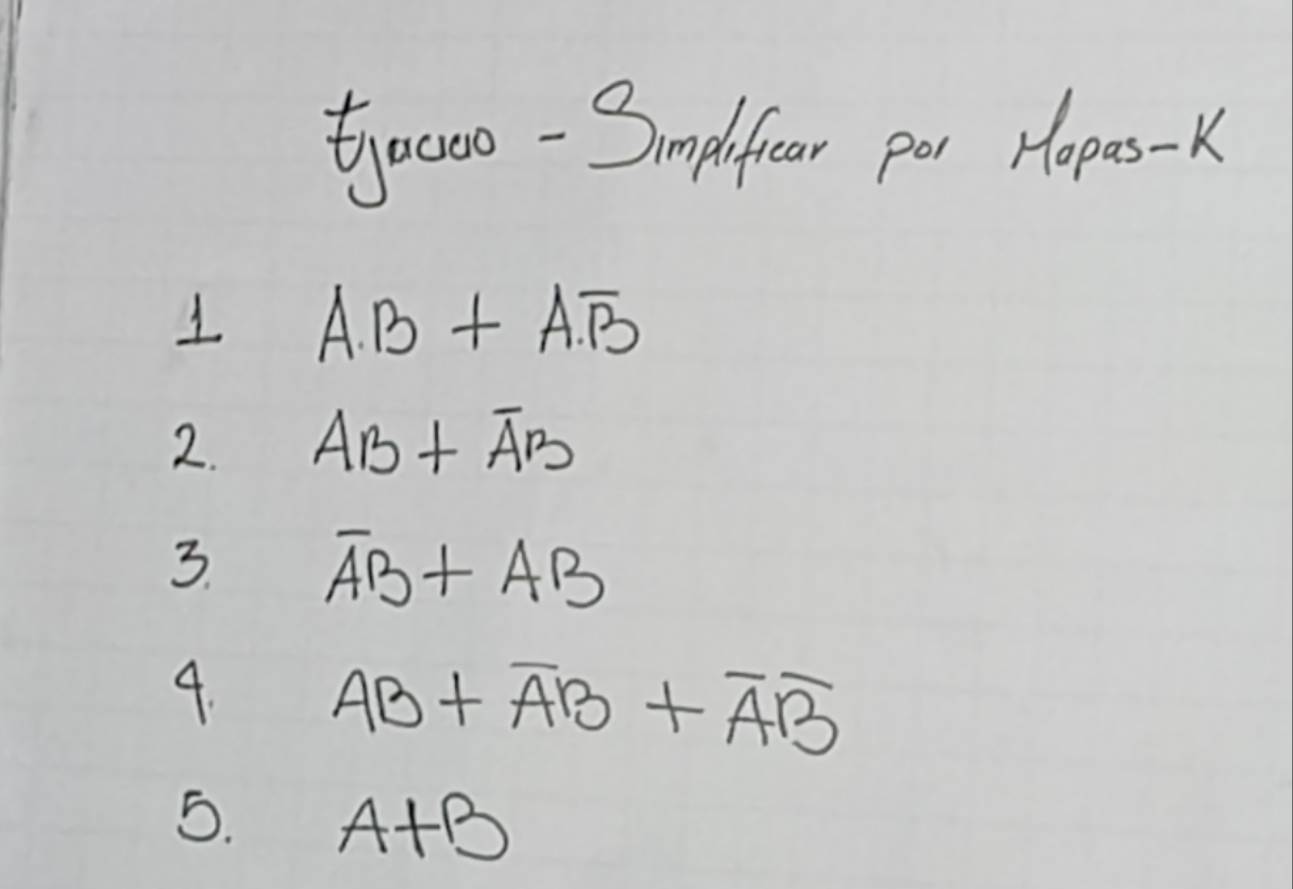 Ejercicio - Simplificar por Mapas-K
1 A.B + A.B̅
2. AB + A̅B
3. A̅B + AB
4. AB + A̅B + A̅B̅
5. A+B